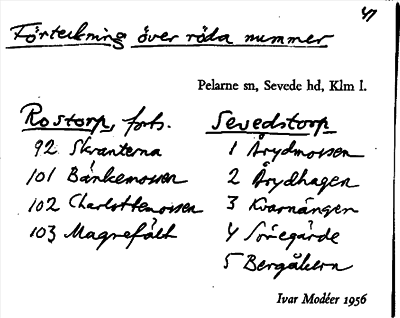 47
Förteckning över röda nummer
Pelarne sn, Sevede hd, Klm l.
Rostorp, forts.
92 Skranterna
101 Bänkemossen
102 Charlottemossen
103 Magrefält
Sevedstorp
1 Årydmossen
2 Årydhagen
3 Kvarnängen
4 Söregärde
5 Bergåkern
Ivar Modéer 1956